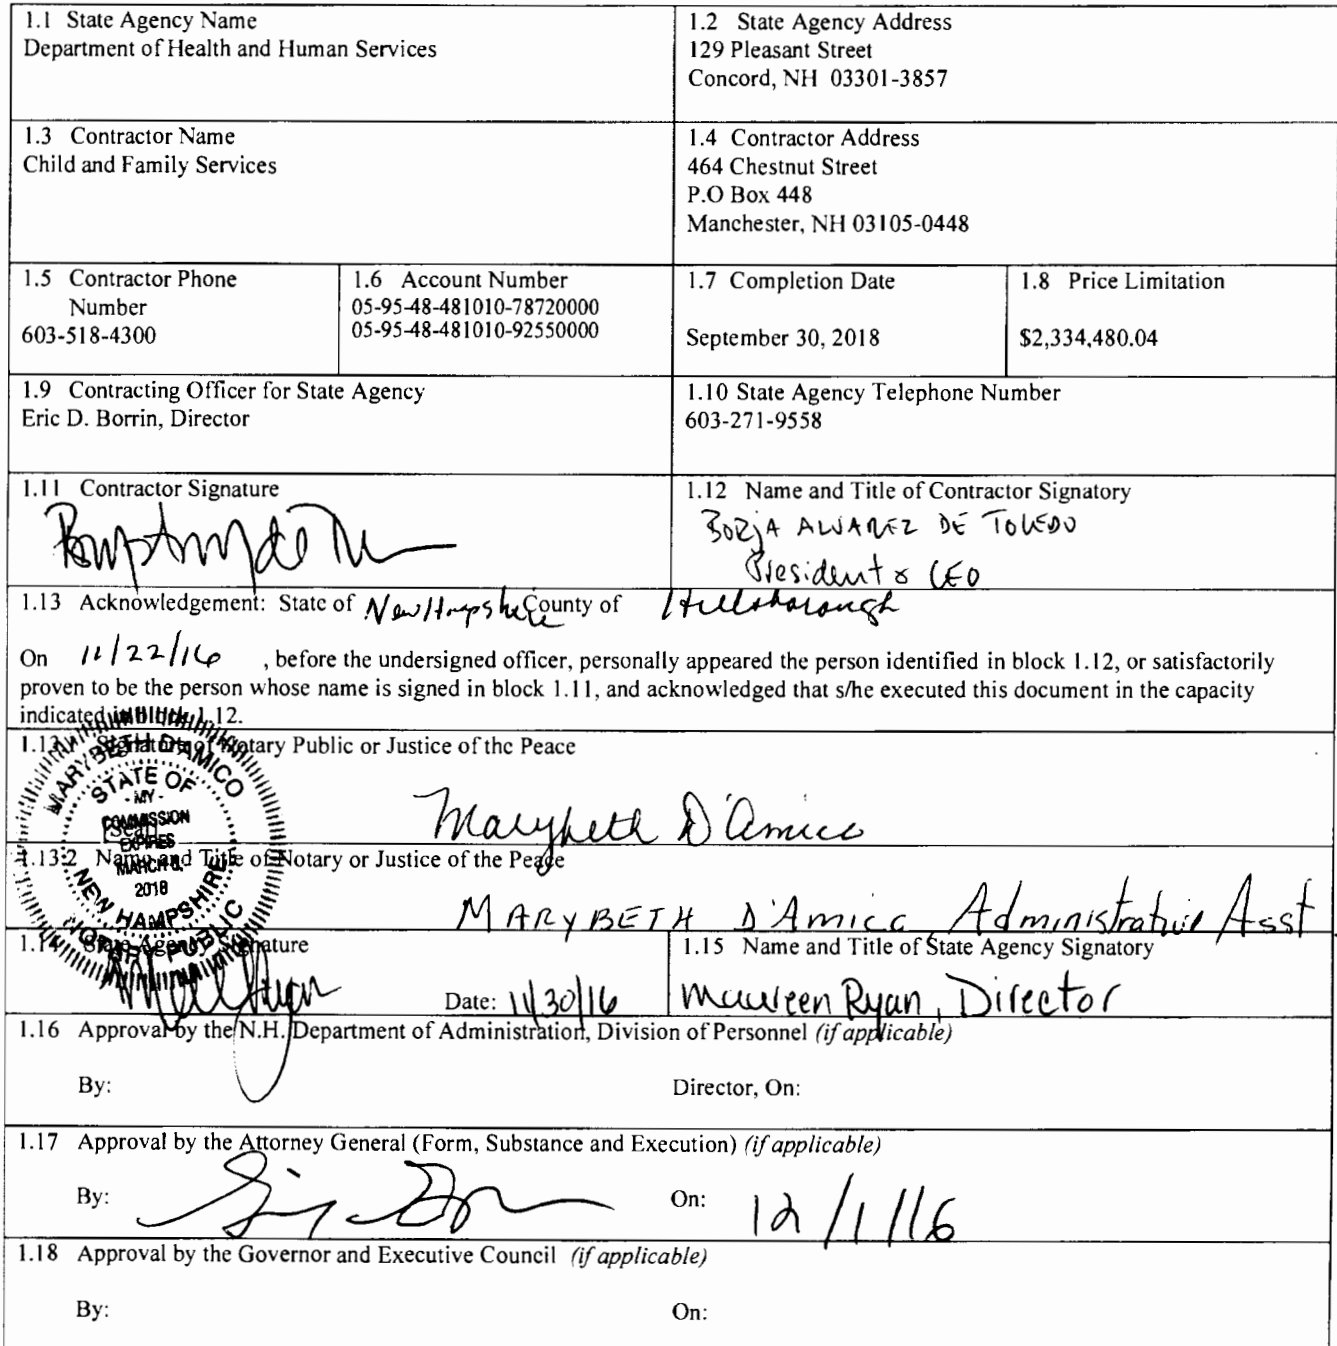 1.1 State Agency Name
Department of Health and Human Services
1.2 State Agency Address
129 Pleasant Street
Concord, NH 03301-3857
1.3 Contractor Name
Child and Family Services
1.4 Contractor Address
464 Chestnut Street
P.O Box 448
Manchester, NH 03105-0448
1.5 Contractor Phone
Number
603-518-4300
1.6 Account Number
05-95-48-481010-78720000
05-95-48-481010-92550000
1.7 Completion Date
September 30, 2018
1.8 Price Limitation
$2,334,480.04
1.9 Contracting Officer for State Agency
Eric D. Borrin, Director
1.10 State Agency Telephone Number
603-271-9558
1.11 Contractor Signature
1.12 Name and Title of Contractor Signatory
BORJA ALVAREZ DE TOLEDO
President & CEO
1.13 Acknowledgement: State of New Hampshire County of Hillsborough
On 11/22/16 , before the undersigned officer, personally appeared the person identified in block 1.12, or satisfactorily
proven to be the person whose name is signed in block 1.11, and acknowledged that s/he executed this document in the capacity
indicated in block 1.12.
1.13.1 Signature of Notary Public or Justice of the Peace
Marybeth D'Amico
[Seal]
MARYBETH D'AMICO
STATE OF
- MY -
COMMISSION
EXPIRES
MARCH
2018
NEW HAMPSHIRE
NOTARY PUBLIC
1.13.2 Name and Title of Notary or Justice of the Peace
MARYBETH D'Amico, Administrative Asst
1.14 State Agency Signature
Date: 11/30/16
1.15 Name and Title of State Agency Signatory
Maureen Ryan, Director
1.16 Approval by the N.H. Department of Administration, Division of Personnel (if applicable)
By:
Director, On:
1.17 Approval by the Attorney General (Form, Substance and Execution) (if applicable)
By:
On: 12/1/16
1.18 Approval by the Governor and Executive Council (if applicable)
By:
On: